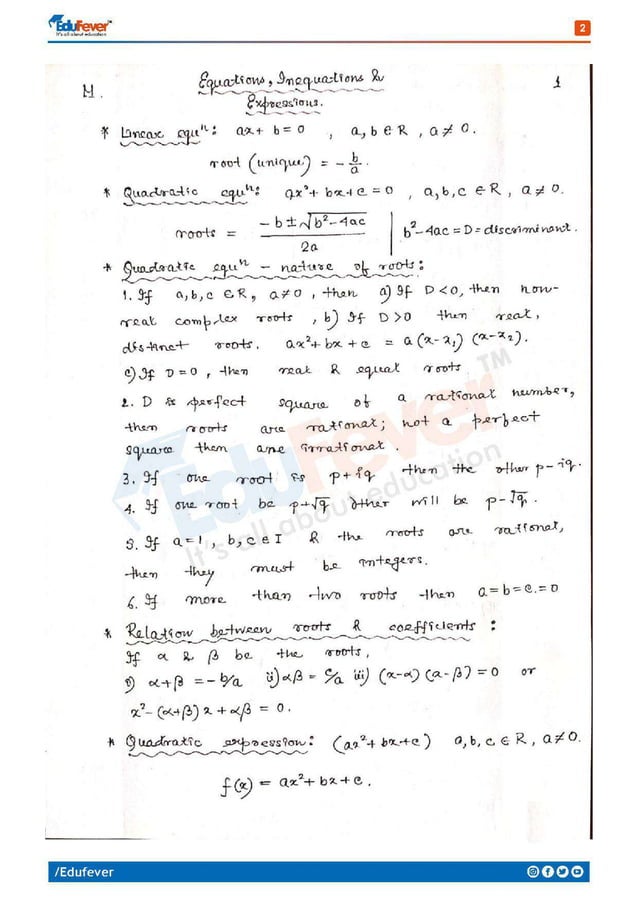 EduFever™
It's all about education
2
M.
Equations, Inequations &
Expressions.
1
* Linear equⁿ: ax + b = 0 , a, b ∈ R , a ≠ 0.
root (unique) = - b/a.
* Quadratic equⁿ: ax² + bx + c = 0 , a, b, c ∈ R, a ≠ 0.
roots = (-b ± √(b²-4ac))/2a | b²-4ac = D = discriminant.
* Quadratic equⁿ - nature of roots:
1. If a, b, c ∈ R, a ≠ 0, then a) If D < 0, then non-
real complex roots, b) If D > 0 then real,
distinct roots. ax² + bx + c = a (x-x₁) (x-x₂).
c) If D = 0, then real & equal roots
2. D is perfect square of a rational number,
then roots are rational; not a perfect
square then are irrational.
3. If one root is p + iq then the other p - iq.
4. If one root be p + √q other will be p - √q.
5. If a = 1, b, c ∈ I & the roots are rational,
then they must be integers.
6. If more than two roots then a = b = c. = 0
* Relation between roots & coefficients :
If α & β be the roots,
i) α + β = - b/a ii) αβ = c/a iii) (x-α) (a-β) = 0 or
x² - (α+β) x + αβ = 0.
* Quadratic expression: (ax² + bx + c) a, b, c ∈ R, a ≠ 0.
f(x) = ax² + bx + c.
EduFever™
It's all about education
/Edufever